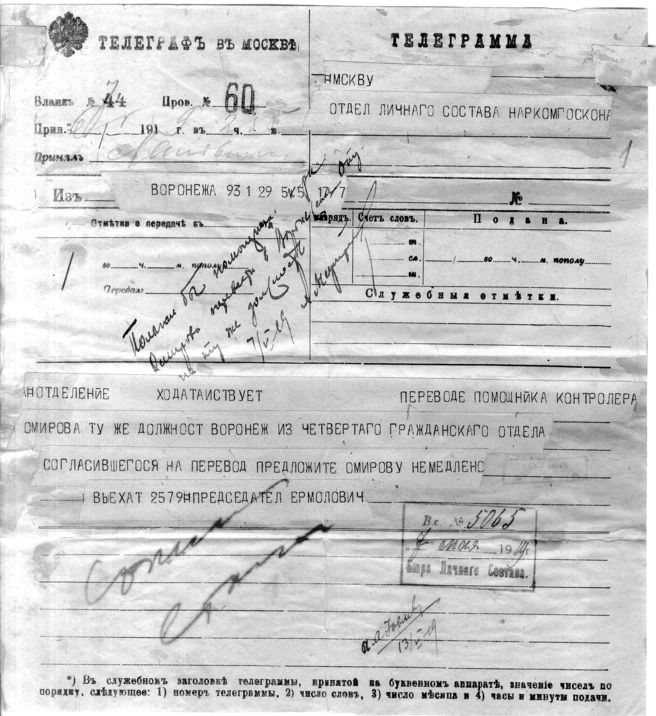 ТЕЛЕГРАФЪ ВЪ МОСКВѢ
Бланкъ № 74 Пров. № 60
Прин. 191 г. въ ч. м.
Принялъ
Изъ ВОРОНЕЖА 93 1 29 5 17 7
Отмѣтка о передачѣ въ
го ч. м. пополу
Передалъ
ТЕЛЕГРАММА
МСКВУ
ОТДЕЛ ЛИЧНАГО СОСТАВА НАРКОМГОСКОНА
1
№
Разрядъ. Счетъ словъ. Подана.
го ч. м. пополу
Служебныя отмѣтки.
Полагал бы
Омирова в Воронеж
на ту же должность
7/V 19
НОТДЕЛЕНИЕ ХОДАТАИСТВУЕТ ПЕРЕВОДЕ ПОМОЩНИКА КОНТРОЛЕРА
ОМИРОВА ТУ ЖЕ ДОЛЖНОСТ ВОРОНЕЖ ИЗ ЧЕТВЕРТАГО ГРАЖДАНСКАГО ОТДЕЛА
СОГЛАСИВШЕГОСЯ НА ПЕРЕВОД ПРЕДЛОЖИТЕ ОМИРОВУ НЕМЕДЛЕНО
ВЬЕХАТ 2579 ПРЕДСЕДАТЕЛ ЕРМОЛОВИЧ
Вх. № 5065
7 мая 1919 г.
Бюро Личнаго Состава.
13/V 19
*) Въ служебномъ заголовкѣ телеграммы, принятой на буквенномъ аппаратѣ, значеніе чиселъ по
порядку, слѣдующее: 1) номеръ телеграммы, 2) число словъ, 3) число мѣсяца и 4) часы и минуты подачи.